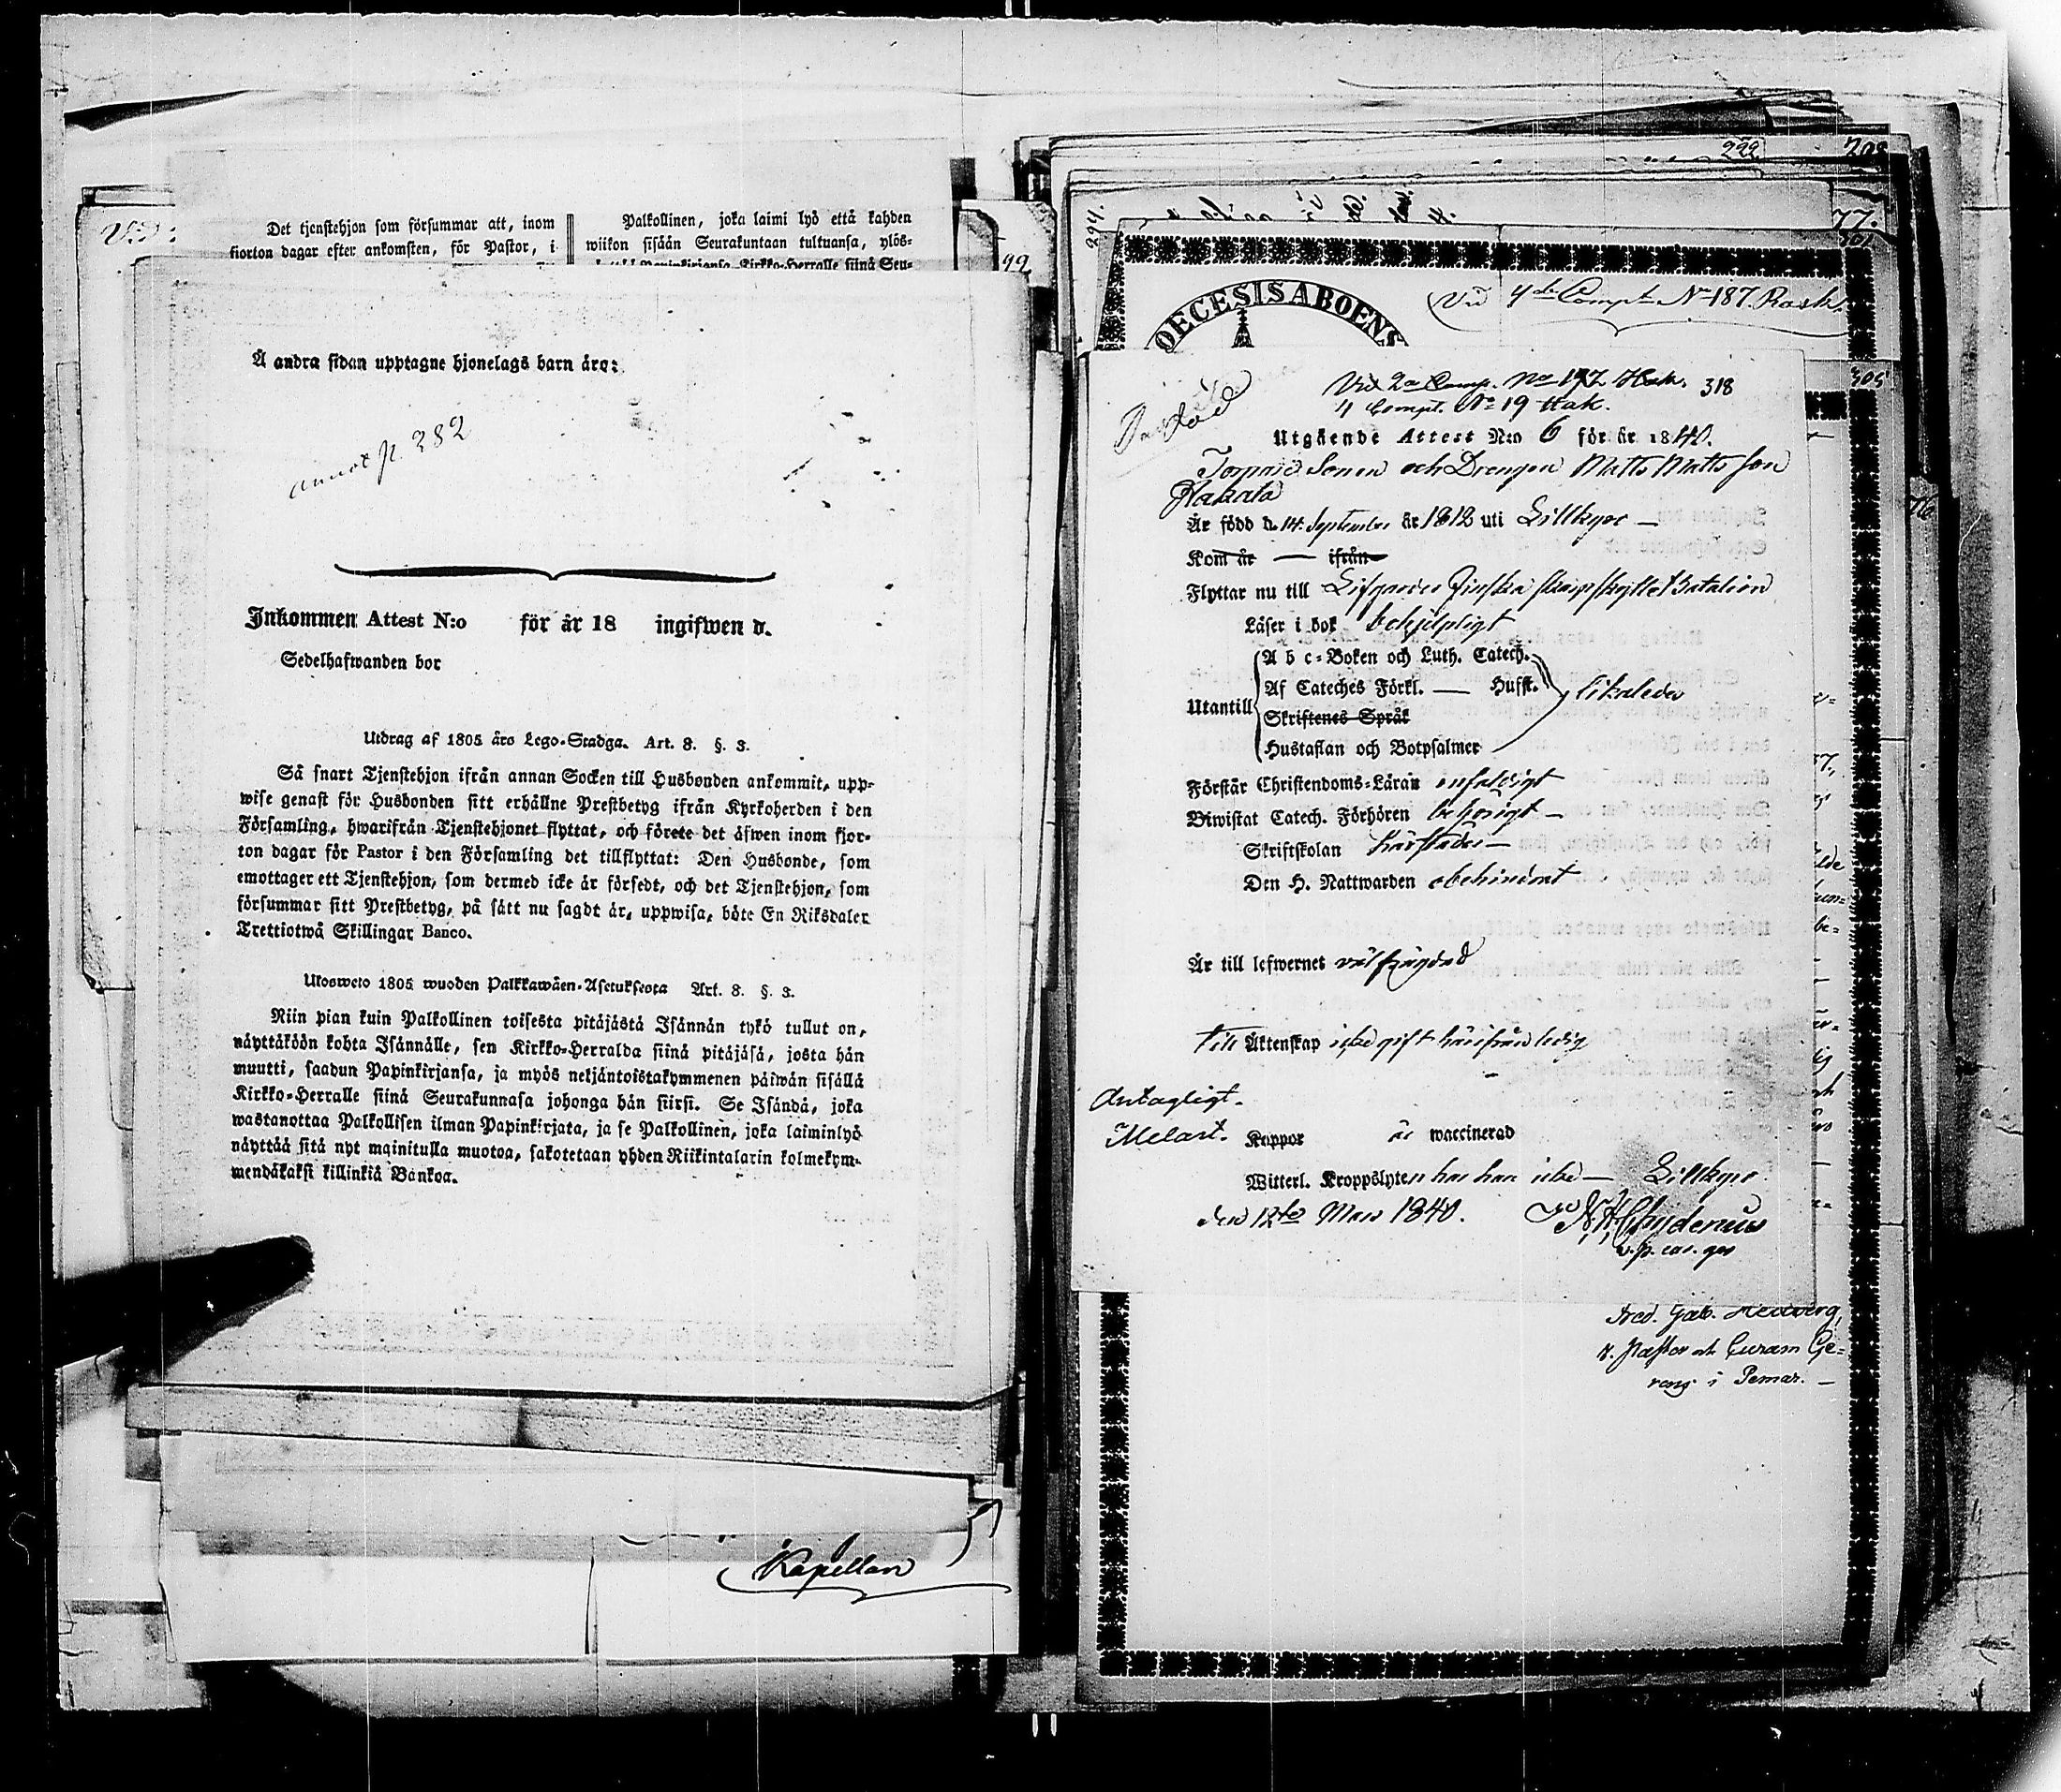 Det tjenstehjon som försummar att, inom
fiorton dagar efter ankomsten, för Pastor, i
Palkollinen, joka laimi lyö että kahden
wiikon sisään Seurakuntaan tultuansa, ylös-
Å andra sidan upptagne hjonelags barn äro:
annot p. 382
Inkommen Attest N:o för år 18 ingifwen d.
Sedelhafwanden bor
Utdrag af 1805 års Lego-Stadga. Art. 8. §. 3.
Så snart Tjenstehjon ifrån annan Socken till Husbonden ankommit, upp-
wise genast för Husbonden sitt erhållne Prestbetyg ifrån Kyrkoherden i den
Församling, hwarifrån Tjenstehjonet flyttat, och förete det äfwen inom fjor-
ton dagar för Pastor i den Församling det tillflyttat: Den Husbonde, som
emottager ett Tjenstehjon, som dermed icke är försedt, och det Tjenstehjon, som
försummar sitt Prestbetyg, på sätt nu sagdt är, uppwisa, böte En Riksdaler
Trettiotwå Skillingar Banco.
Ulosweto 1805 wuoden Palkkawäen-Asetuksesta Art. 8. §. 3.
Niin pian kuin Palkollinen toisesta pitäjästä Isännän tykö tullut on,
näyttäköön kohta Isännälle, sen Kirkko-Herralda siinä pitäjäsä, josta hän
muutti, saadun Papinkirjansa, ja myös neljäntoistakymmenen päiwän sisällä
Kirkko-Herralle siinä Seurakunnasa johonga hän siirsi. Se Isändä, joka
wastanottaa Palkollisen ilman Papinkirjata, ja se Palkollinen, joka laiminlyö
näyttää sitä nyt mainitulla muotoa, sakotetaan yhden Riikintalarin kolmekym-
mendäkaksi killinkiä Bankoa.
Kapellan
99
222
208
294.
77.
301
Vid 4de Compt No 187. Rask.
OECESIS ABOENS
305
Vid 2a Comp. No 172 Hak. 318
4 Compt. No 19 Hak.
Utgående Attest N:o 6 för år 1840.
Torpare Sonen och Drengen Matts Matts son
Är född d. 14. September år 1812 uti Lillkyro
Kom år — ifrån
Flyttar nu till Lifgardes Finska skarpskytte Batalion
Läser i bok behjelpligt
Utantill
A b c-Boken och Luth. Catech.
Af Cateches Förkl. — Husst.
likaledes
Skriftenes Språk
Hustaflan och Botpsalmer
Förstår Christendoms-Läran enfaldigt
Biwistat Catech. Förhören behörigt
Skriftskolan härstädes
Den H. Nattwarden obehindrat
Är till lefwernet välfrägdad
Till Äktenskap icke gift härifrån ledig
Antagligt.
Melart.
Koppor är waccinerad
Witterl. Kroppslyten har han icke — Lillkyro
den 12te Mars 1840. Chydenius
Fred. Gab. Hedberg,
v. Pastor et Curam Ge-
rens i Pemar.